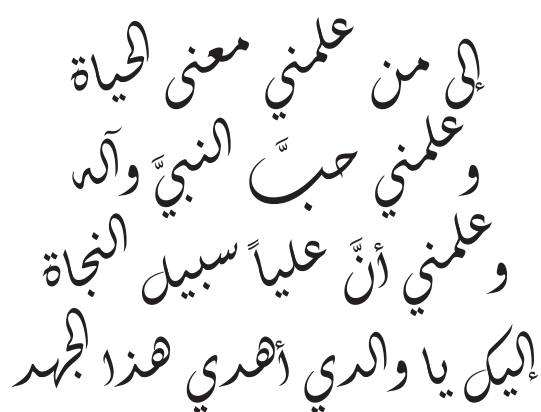 إلى من علمني معنى الحياة
وعلمني حبَّ النبيَّ وآله
وعلمني أنَّ علياً سبيل النجاة
إليك يا والدي أهدي هذا الجهد